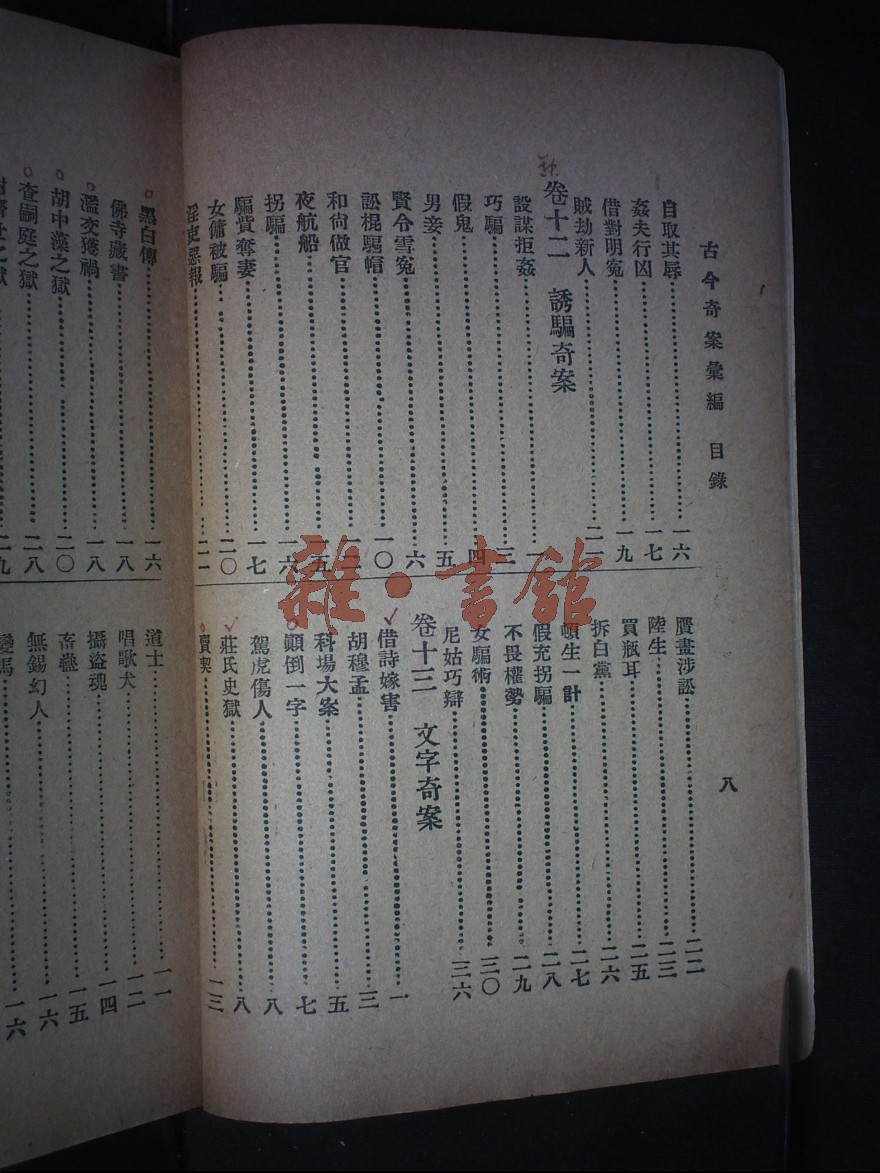 古今奇案彙編 目錄
八
自取其辱 一六
姦夫行凶 一七
借對明冤 一九
賊劫新人 二一
卷十二 誘騙奇案
設謀拒姦 一
巧騙 三
假鬼 四
男妾 五
賢令雪冤 六
訟棍騙帽 一〇
和尚做官
夜航船 一五
拐騙 一六
騙貲奪妻 一七
女傭被騙 二〇
惡報
贋畫涉訟 二二
陸生 二三
買瓶耳 二五
拆白黨 二六
頓生一計 二七
假充拐騙 二八
不畏權勢 二九
女騙術 三〇
尼姑巧辯 三六
卷十三 文字奇案
借詩嫁害 一
胡穆孟 三
科場大案 五
顛倒一字 七
駕虎傷人 八
莊氏史獄 八
賣契 一三
黑白傳 一六
佛寺藏書 一八
濫交獲禍 一八
胡中藻之獄 二〇
查嗣庭之獄 二八
之獄 二九
道士 一一
唱歌犬 一二
攝盜魂 一四
畜蠱 一五
無錫幻人 一六
變馬 一六
雜·書館